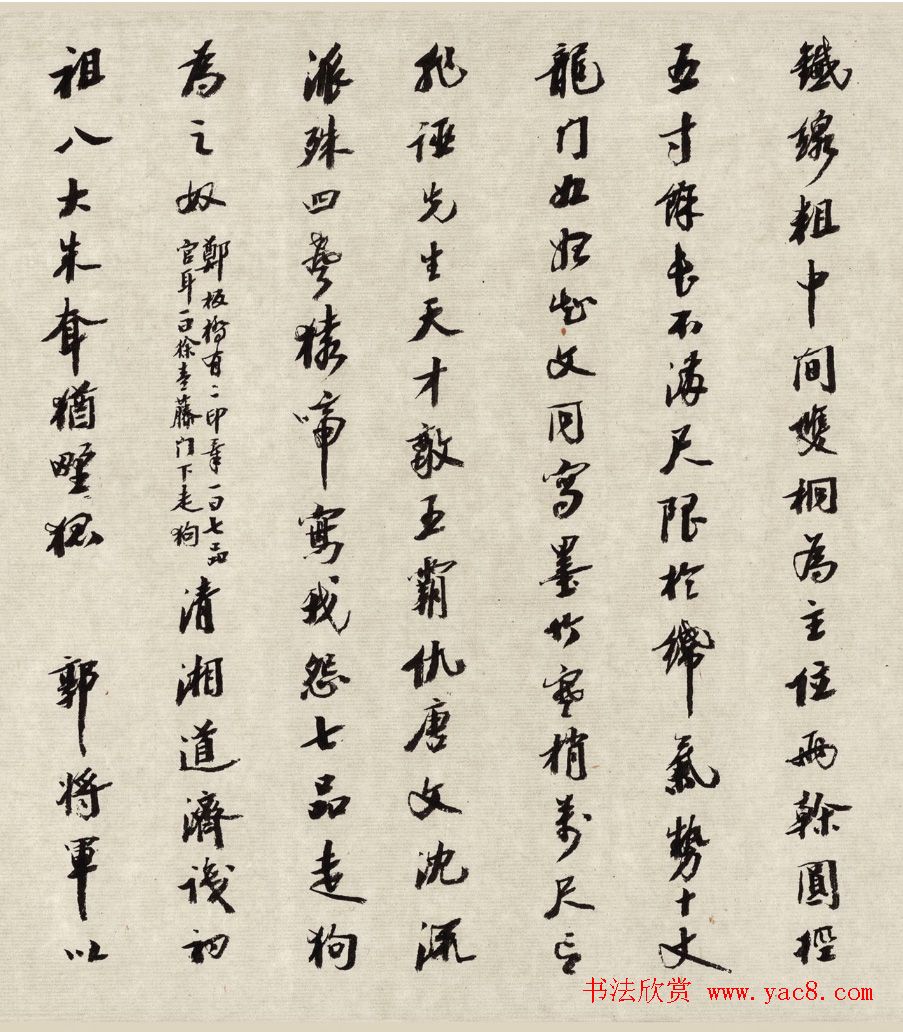 鐵線粗中間雙桐為主住兩幹圓徑
五寸餘長不滿尺限於繃氣勢十丈
龍門如妬起文同寫墨竹寒梢萬尺言
非誣先生天才敵五霸仇唐文沈流
派殊四聲猿啼寫我怨七品走狗
為之奴
鄭板橋有二印章一曰七品
官耳一曰徐青藤門下走狗
清湘道濟後初
祖八大朱耷猶野狐 郭將軍以
书法欣赏 www.yac8.com